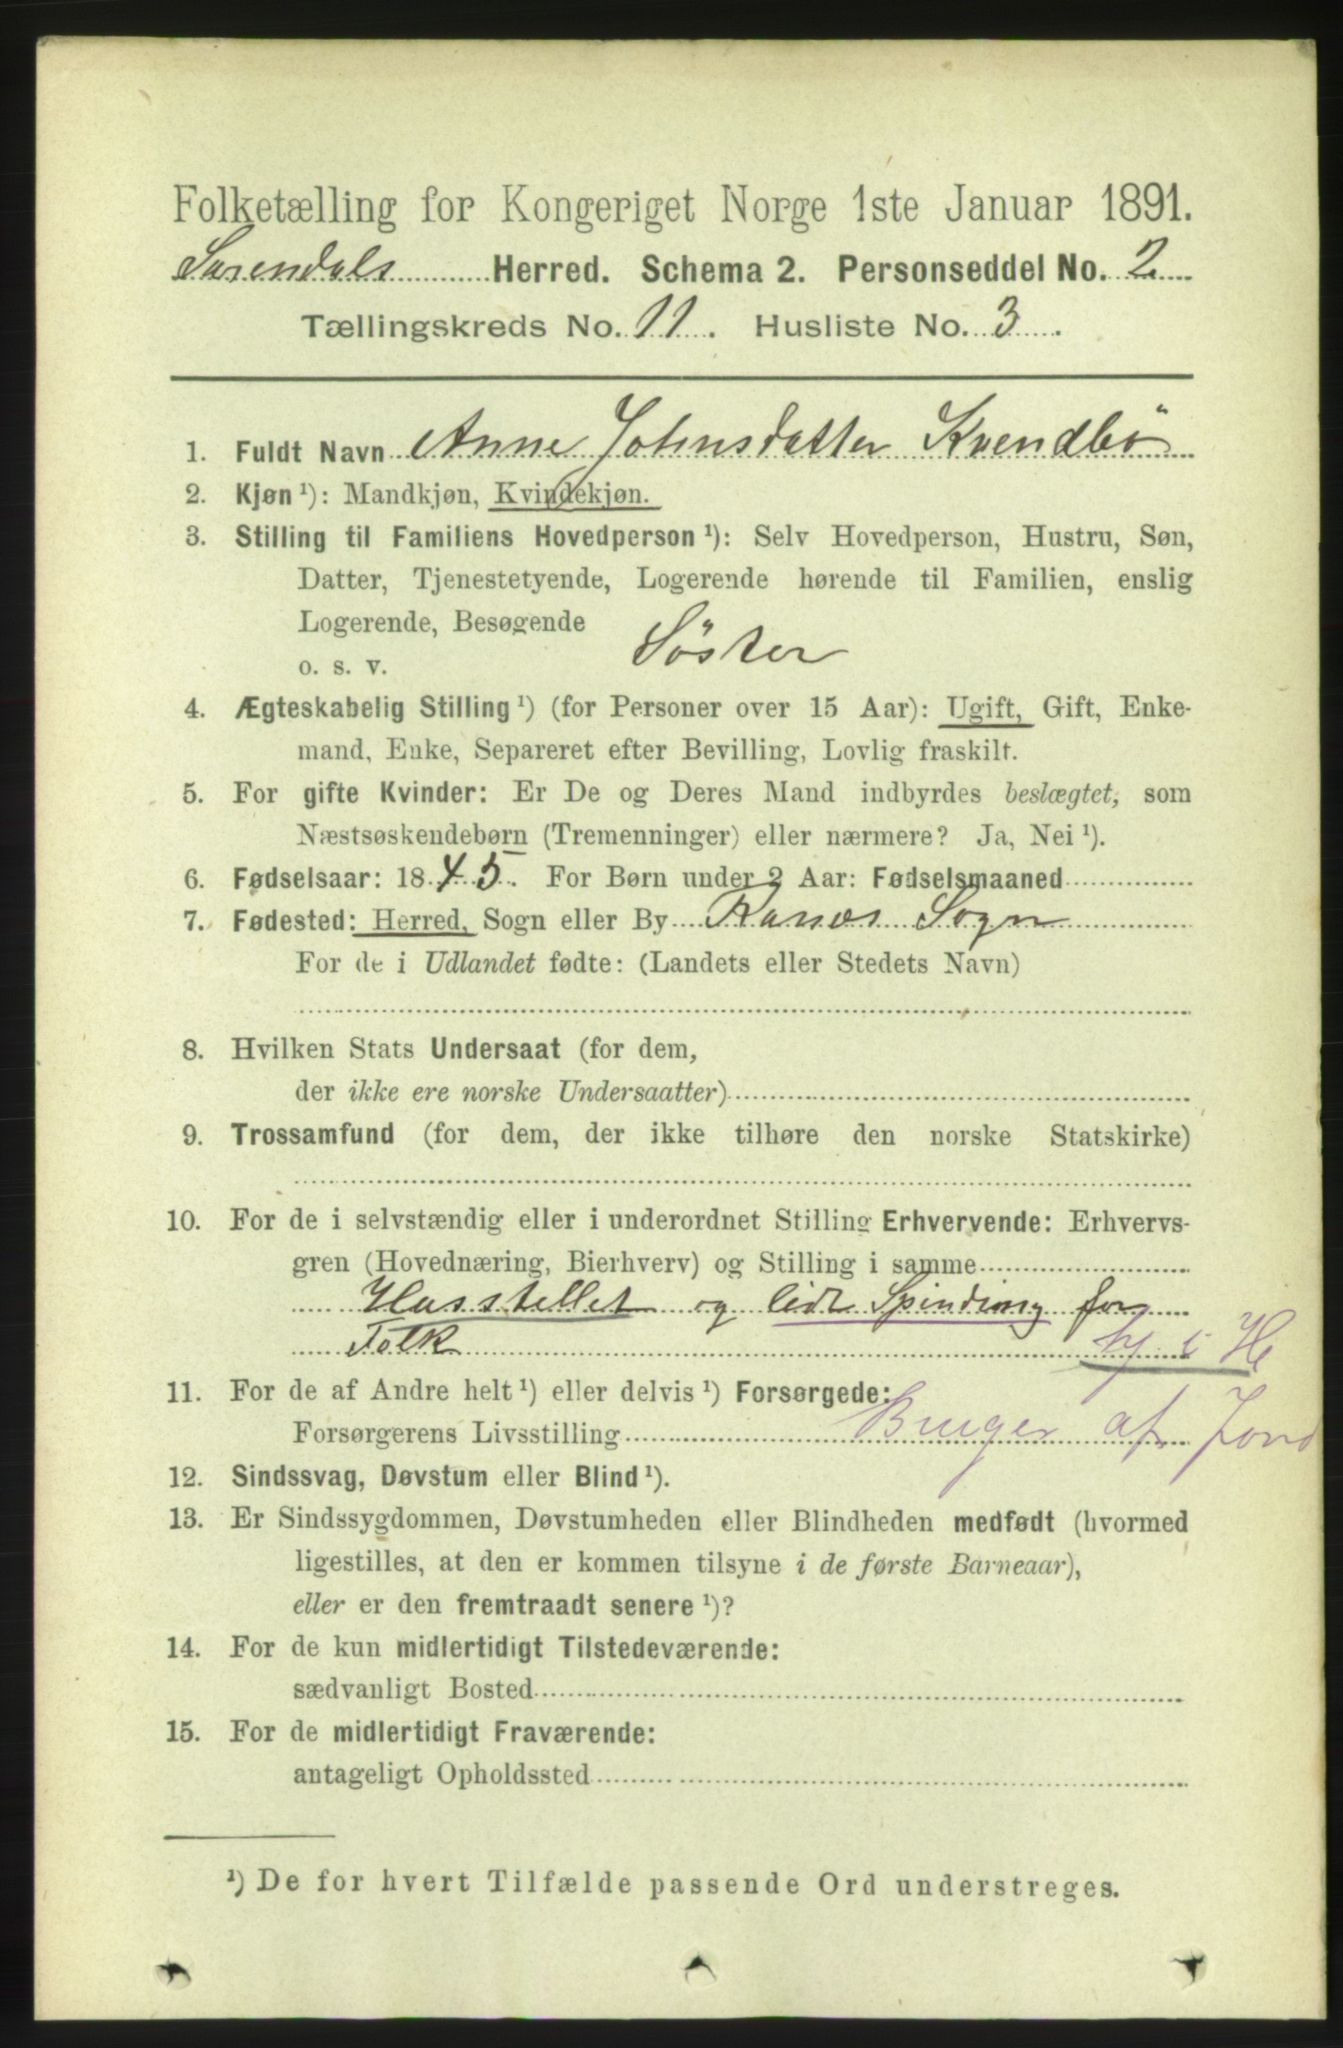 Folketælling for Kongeriget Norge 1ste Januar 1891.
Surendals Herred. Schema 2. Personseddel No. 2
Tællingskreds No. 11. Husliste No. 3.
1. Fuldt Navn Anne Johnsdatter Kvendbö
2. Kjøn ¹): Mandkjøn, Kvindekjøn.
3. Stilling til Familiens Hovedperson ¹): Selv Hovedperson, Hustru, Søn,
Datter, Tjenestetyende, Logerende hørende til Familien, enslig
Logerende, Besøgende
o. s. v. Söster
4. Ægteskabelig Stilling ¹) (for Personer over 15 Aar): Ugift, Gift, Enke-
mand, Enke, Separeret efter Bevilling, Lovlig fraskilt.
5. For gifte Kvinder: Er De og Deres Mand indbyrdes beslægtet, som
Næstsøskendebørn (Tremenninger) eller nærmere? Ja, Nei ¹).
6. Fødselsaar: 1845. For Børn under 2 Aar: Fødselsmaaned
7. Fødested: Herred, Sogn eller By Ranæs Sogn
For de i Udlandet fødte: (Landets eller Stedets Navn)
8. Hvilken Stats Undersaat (for dem,
der ikke ere norske Undersaatter)
9. Trossamfund (for dem, der ikke tilhøre den norske Statskirke)
10. For de i selvstændig eller i underordnet Stilling Erhvervende: Erhvervs-
gren (Hovednæring, Bierhverv) og Stilling i samme
Husstellet og lidt Spinding for
Folk i H
11. For de af Andre helt ¹) eller delvis ¹) Forsørgede:
Forsørgerens Livsstilling Bruger af Jord
12. Sindssvag, Døvstum eller Blind ¹).
13. Er Sindssygdommen, Døvstumheden eller Blindheden medfødt (hvormed
ligestilles, at den er kommen tilsyne i de første Barneaar),
eller er den fremtraadt senere ¹)?
14. For de kun midlertidigt Tilstedeværende:
sædvanligt Bosted
15. For de midlertidigt Fraværende:
antageligt Opholdssted
¹) De for hvert Tilfælde passende Ord understreges.